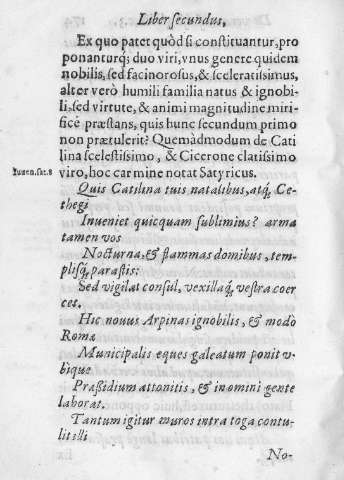 Liber secundus,
Ex quo patet quòd si constituantur, pro
ponanturq́; duo viri, vnus genere quidem
nobilis, sed facinorosus, & sceleratissimus,
alter verò humili familia natus & ignobi-
li, sed virtute, & animi magnitudine miri-
ficè præstans, quis hunc secundum primo
non prætulerit? Quemàdmodum de Cati
lina scelestissimo, & Cicerone clarissimo
Iuuen. sat. 8 viro, hoc carmine notat Satyricus.
Quis Catilina tuis natalibus, atq́; Ce-
thegi
Inueniet quicquam sublimius? arma
tamen vos
Nocturna, & flammas domibus, tem-
plisq́; parastis:
Sed vigilat consul, vexillaq́; vestra coer
ces.
Hic nouus Arpinas ignobilis, & modò
Romæ
Municipalis eques galeatum ponit v-
bique
Præsidium attonitis, & in omni gente
laborat.
Tantum igitur muros intra toga contu-
lit illi
No-